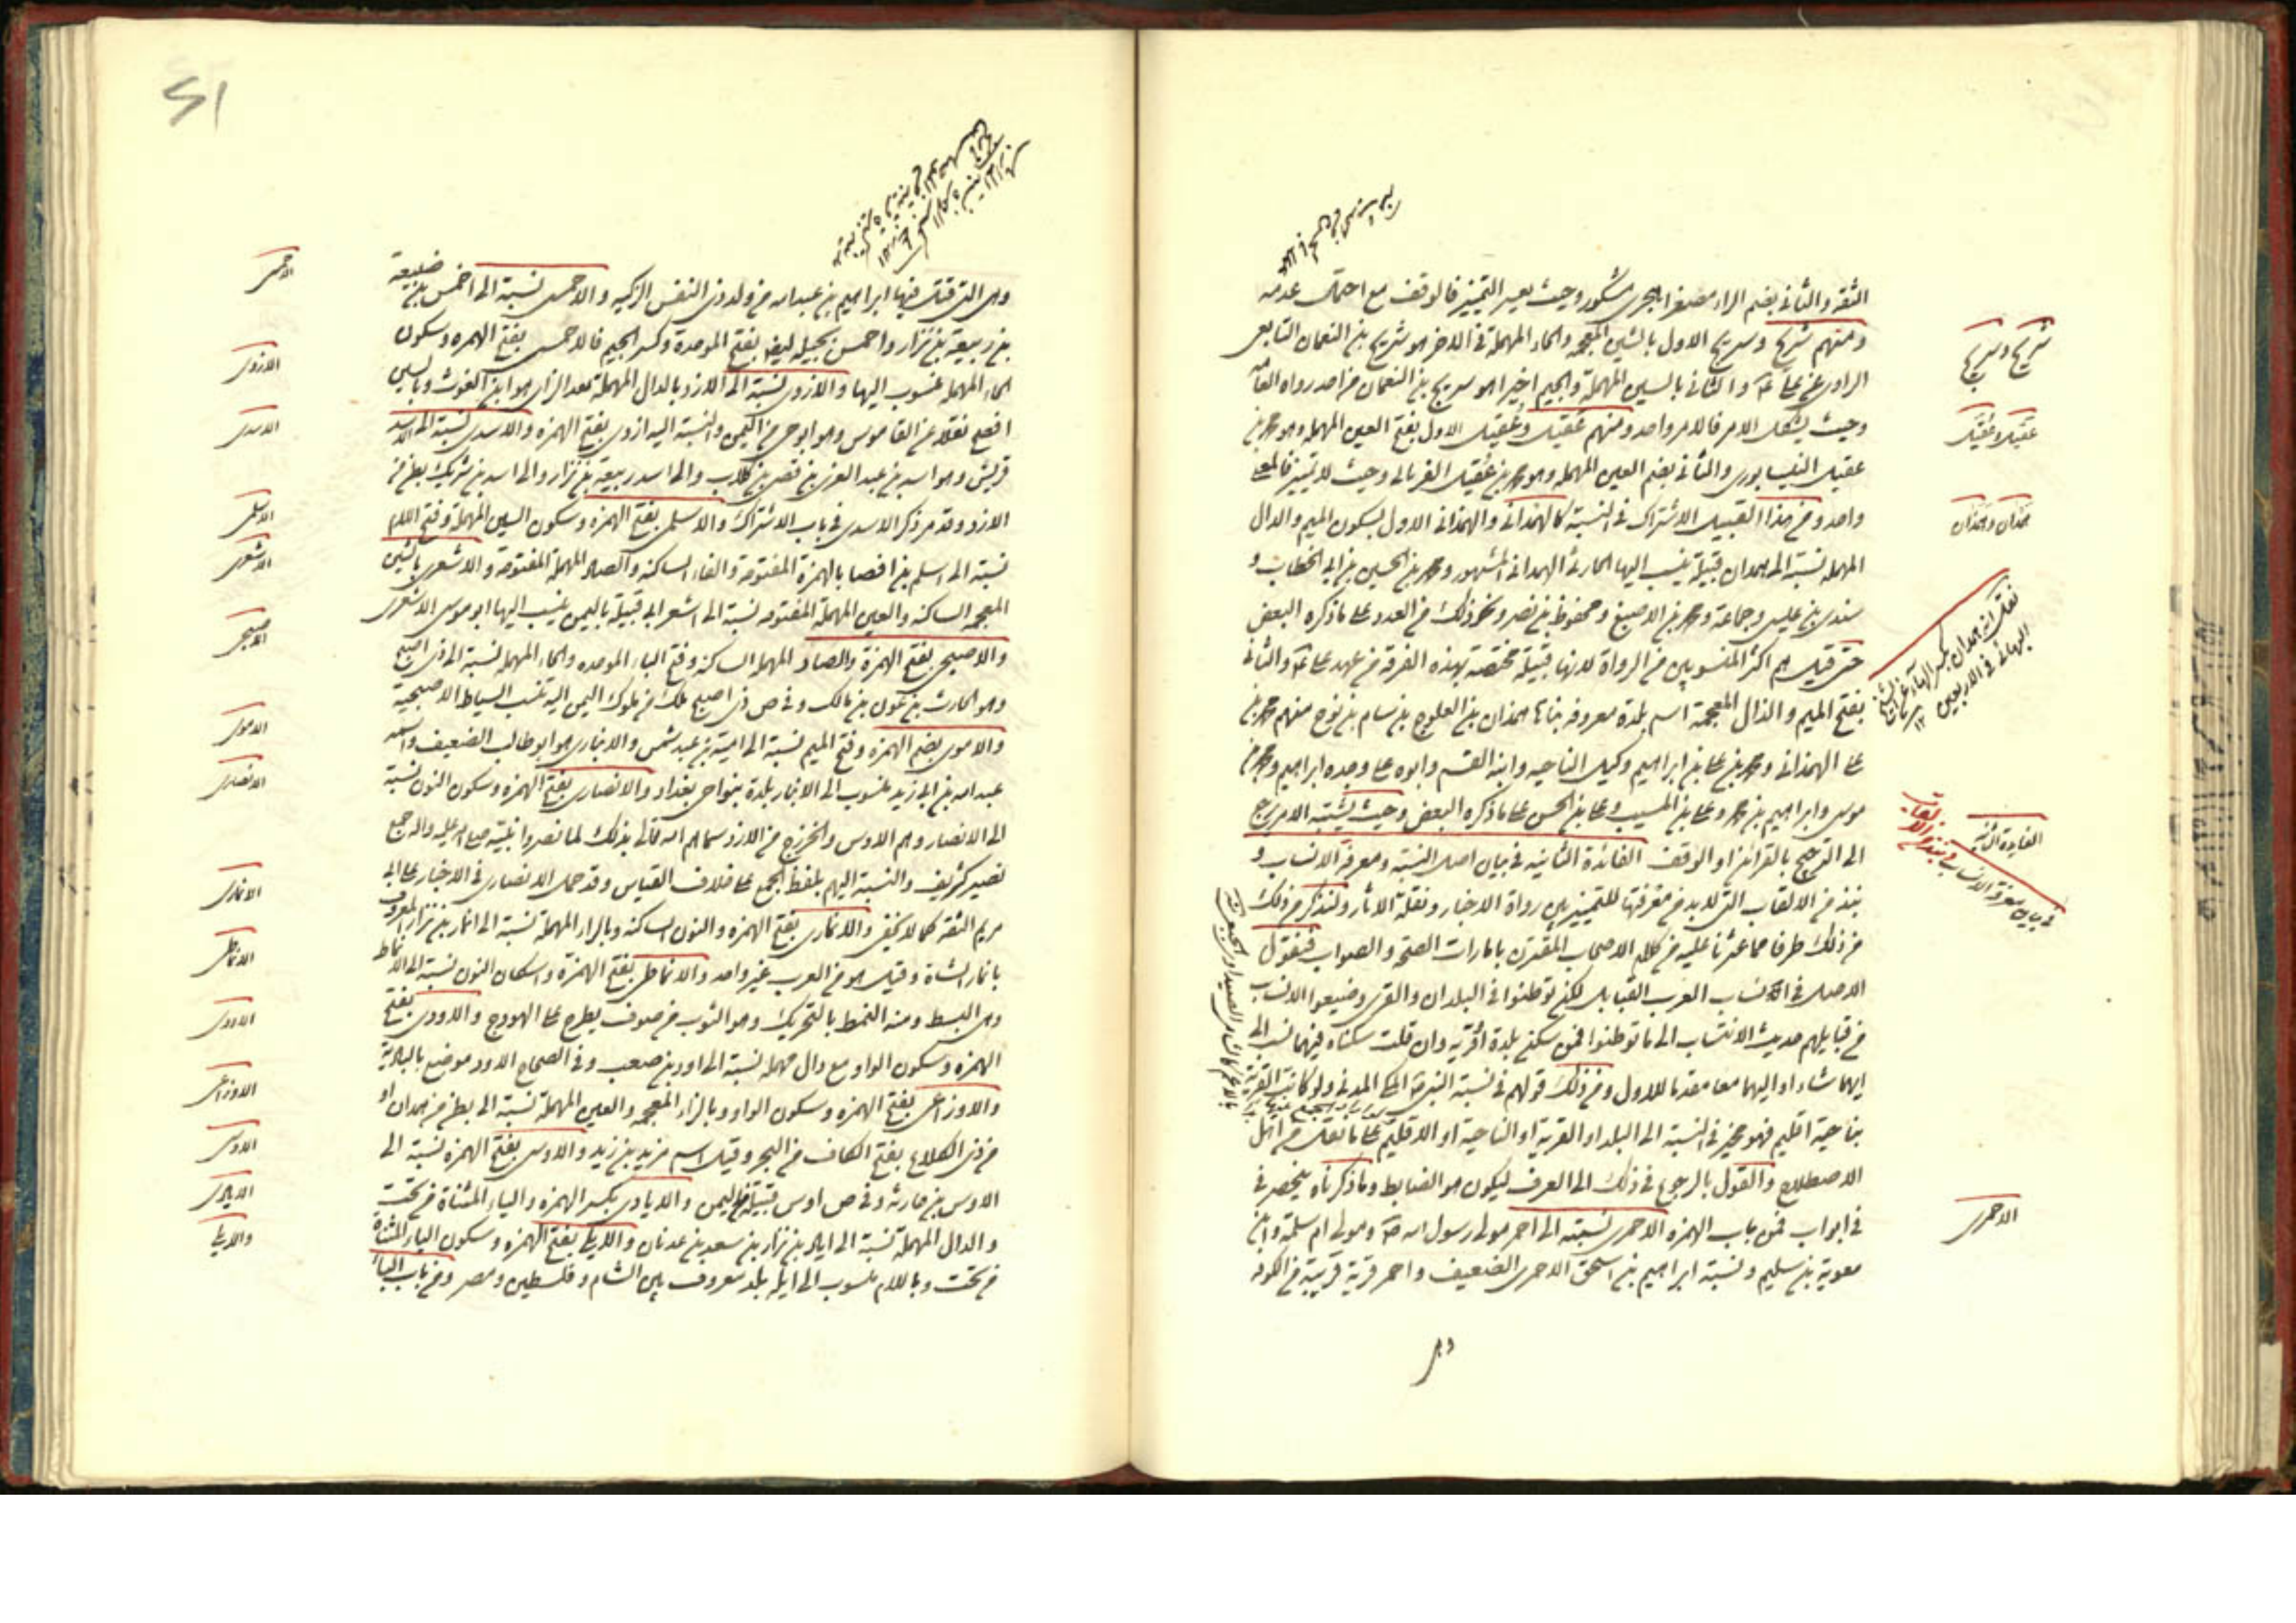 الثقة والثاني بضم الراء مصغرا بجرى مشكور وحيث يعسر التمييز فالوقف مع احتمال عدمه
ومنهم شريح وسريج الاول بالشين المعجمه والحاء المهملة في الاخر هو شريح بن النعمان التابعى
الراوى عن على ع والثاني بالسين المهملة والجيم اخيرا هو سريج بن النعمان من احد رواه العامه
وحيث يشكل الامر فالامر واحد ومنهم عَقيل وعُقيل الاول بفتح العين المهمله وهو محمد بن
عقيل النيسابورى والثاني بضم العين المهمله وهو محمد بن عُقيل الفريابي وحيث لا تمييز فالمعنى
واحد ومن هذا القبيل الاشتراك في النسبة كالهمداني والهمذاني الاول بسكون الميم والدال
المهمله نسبة الى همدان قبيلة ينسب اليها الحارث الهمداني المشهور ومحمد بن الحسين بن ابي الخطاب و
سندى بن عيسى وجماعة ومحمد بن الاصبغ ومحفوظ بن نصر ونحو ذلك من العدد على ما ذكره البعض
حتى قيل هم اكثر المنسوبين من الرواة لانها قبيلة مختصة بهذه الفرقة من عهد على ع والثاني
بفتح الميم والذال المعجمة اسم بلدة معروفه بناها همذان بن الفلوج بن سام بن نوح منهم محمد بن
على الهمذاني ومحمد بن على بن ابراهيم وكيل الناحيه وابنه القسم وابوه على وجده ابراهيم ومحمد بن
موسى وابراهيم بن محمد وعلى بن المسيب وعلى بن الحسن على ما ذكره البعض وحيث يشتبه الامر يرجع
الى الترجيح بالقرائن او الوقف الفائدة الثانيه في بيان اصل النسبة ومعرفة الانساب و
نبذ من الالقاب التى لابد من معرفتها للتمييز بين رواة الاخبار ونقلة الاثار ولنذكر من ذلك
من ذلك طرفا مما عثرنا عليه من كلام الاصحاب المقترن بامارات الصحه والصواب فنقول
الاصل في انساب العرب القبايل لكنهم توطنوا في البلدان والقرى وضيعوا الانساب
من قبايلهم حديث الانتساب الى ما توطنوا فمن سكن بلدة او قرية وان قلت سكناه فيهما نسب الى
ايهما شاء او اليهما معا مقدما للاول ومن ذلك قولهم في نسبة النبي ص المكى المدني ولو كانت القرية
بناحية اقليم فهو مخير في النسبة الى البلد او القرية او الناحية او الاقليم على ما نقل من اهل
الاصطلاح والقول بالرجوع في ذلك الى العرف ليكون هو الضابط وما ذكرناه ينحصر في
في ابواب فمن باب الهمزه الاحمرى نسبته الى احمر مولى رسول الله ص ومولى ام سلمة وابن
معوية بن سليم ونسبة ابراهيم بن اسحق الاحمرى الضعيف واحمر قرية قريبة من الكوفه
شريح وسريج
عقيل وعقيل
همدان وهمذان
نقل ان همدان بكسر الهاء عن الشيخ
البهائى في الاربعين ١٢
الفايدة الثانية
في بيان معرفة الانساب
ونبذ من الالقاب
الاحمرى
وهى
وهى التى قتل فيها ابراهيم بن عبدالله من ولد ذى النفس الزكيه والاحمسى نسبة الى احمس بن ضبيعة
بن ربيعة بن نزار واحمس بجيله ايضا بفتح الموحدة وكسر الجيم فالاحمسى بفتح الهمزه وسكون
الحاء المهمله منسوب اليها والازدى نسبة الى الازد بالدال المهملة بعد الزاى هو ابن الغوث وبالسين
افصح نقلا عن القاموس وهو ابو حى من اليمن والنسبة اليه ازدى بفتح الهمزه والاسدى نسبة الى اسد
قريش وهو اسد بن عبد العزى بن قصى بن كلاب والى اسد ربيعة بن نزار والى اسد بن شريك بطن من
الازد وقد مر ذكر الاسدى في باب الاشتراك والاسلمى بفتح الهمزه وسكون السين المهملة وفتح اللام
نسبة الى اسلم بن افصا بالهمزة المفتوحة والفاء الساكنه والصاد المهملة المفتوحة والاشعرى بالشين
المعجمه الساكنه والعين المهملة المفتوحه نسبة الى اشعر ابي قبيلة باليمن ينسب اليها ابو موسى الاشعرى
والاصبحى بفتح الهمزة والصاد المهمله الساكنه وفتح الباء الموحده والحاء المهمله نسبة الى ذى اصبح
وهو الحارث بن عوف بن مالك وفي ص ذى اصبح ملك من ملوك اليمن اليه تنسب السياط الاصبحية
والاموى بضم الهمزه وفتح الميم نسبة الى امية بن عبد شمس والانبارى هو ابو طالب الضعيف واسمه
عبدالله بن ابي زيد منسوب الى الانبار بلدة بنواحى بغداد والانصارى بفتح الهمزه وسكون النون نسبة
الى الانصار وهم الاوس والخزرج من الازد سماهم الله تعالى بذلك لما نصروا نبيه صلى الله عليه واله جمع
نصير كشريف والنسبة اليهم بلفظ الجمع على خلاف القياس وقد حمل الانصارى في الاخبار على ابي
مريم الثقه كما لا يخفى والانمارى بفتح الهمزه والنون الساكنه وبالراء المهملة نسبة الى انمار بن نزار المعروف
بانمار الشاة وقيل هو من العرب غير واحد والانماطى بفتح الهمزة واسكان النون نسبة الى الانماط
وهى البسط ومنه النمط بالتحريك وهو الثوب من صوف يطرح على الهودج والاودى بفتح
الهمزه وسكون الواو مع دال مهمله نسبة الى اود بن صعب وفي الصحاح الاود موضع بالباديه
والاوزاعى بفتح الهمزه وسكون الواو وبالزاء المعجمه والعين المهملة نسبة الى بطن من همدان او
من ذى الكلاع بفتح الكاف من البحر وقيل اسم مزيد بن زيد والاوسى بفتح الهمزه نسبة الى
الاوس بن حارثه وفي ص اوس قبيلة من اليمن والايادى بكسر الهمزه والياء المثناة من تحت
والدال المهملة نسبة الى اياد بن نزار بن سعد بن عدنان والايلى بفتح الهمزه وسكون الياء المثناة
من تحت وباللام منسوب الى ايلة بلد معروف بين الشام وفلسطين ومصر ومن باب الباء
الاحمسى
الازدى
الاسدى
الاسلمى
الاشعرى
الاصبحى
الاموى
الانصارى
الانمارى
الانماطى
الاودى
الاوزاعى
الاوسى
الايادى
والايلى